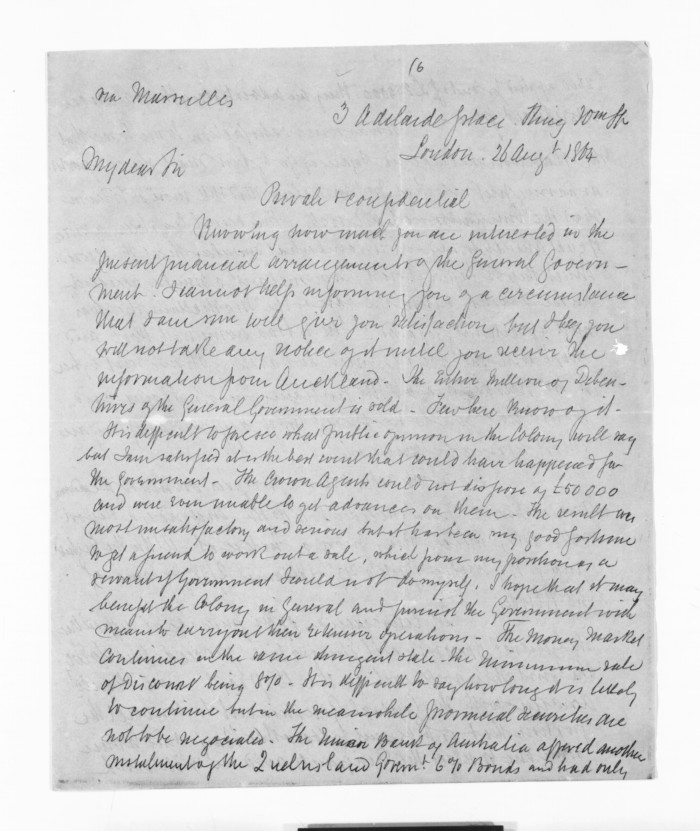 16
via Marseilles
3 Adelaide place King Wm St
London. 26 Augt 1864
My dear Sir
Private & confidential
Knowing how much you are interested in the
present financial arrangements of the General Govern-
ment. I cannot help informing you of a circumstance
that I am sure will give you satisfaction but I beg you
will not take any notice of it until you receive the
information from Auckland. The Entire Million of Deben-
tures of the General Government is sold - Few here know of it.
It is difficult to foresee what public opinion in the Colony will say
but I am satisfied it is the best event that could have happened for
the Government - The Crown Agents could not dispose of £50 000
and were even unable to get advances on them - The result was
most unsatisfactory and serious but it has been my good fortune
to get a friend to work out a sale, which from my position as a
servant of Government I could not do myself. I hope that it may
benefit the Colony in General and furnish the Government with
means to carry out their Extensive operations - The Money Market
continues in the same stringent state - the Minimum rate
of Discount being 8%. It is difficult to say how long it is likely
to continue but in the meanwhile Provincial securities are
not to be negociated. The Union Bank of Australia offered another
instalment of the Queensland Governt 6% Bonds and had only